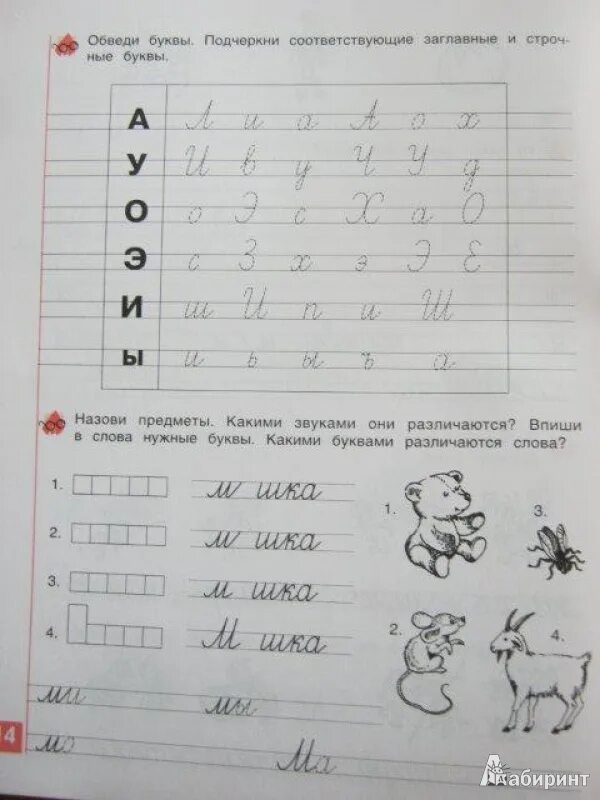 Обведи буквы. Подчеркни соответствующие заглавные и строч-
ные буквы.
А Л и а А о х
У И в у Ч У д
О о Э с Х а О
Э с З х э Э Е
И ш И п и Ш
ы и ь ы ъ а
Назови предметы. Какими звуками они различаются? Впиши
в слова нужные буквы. Какими буквами различаются слова?
1. м шка
2. м шка
3. м шка
4. М шка
1.
3.
2.
4.
ми мы
мо Ма
14
Лабиринт